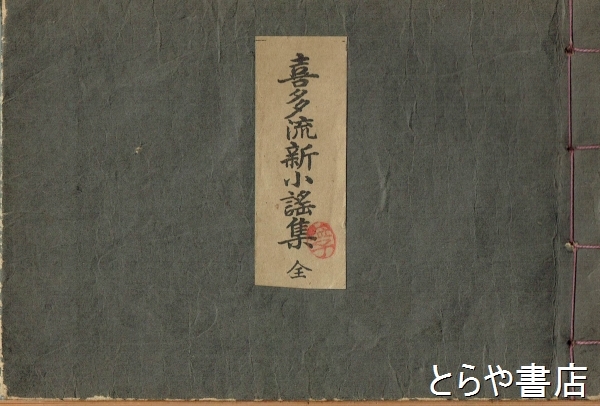 喜多流新小謠集 全
金子
とらや書店